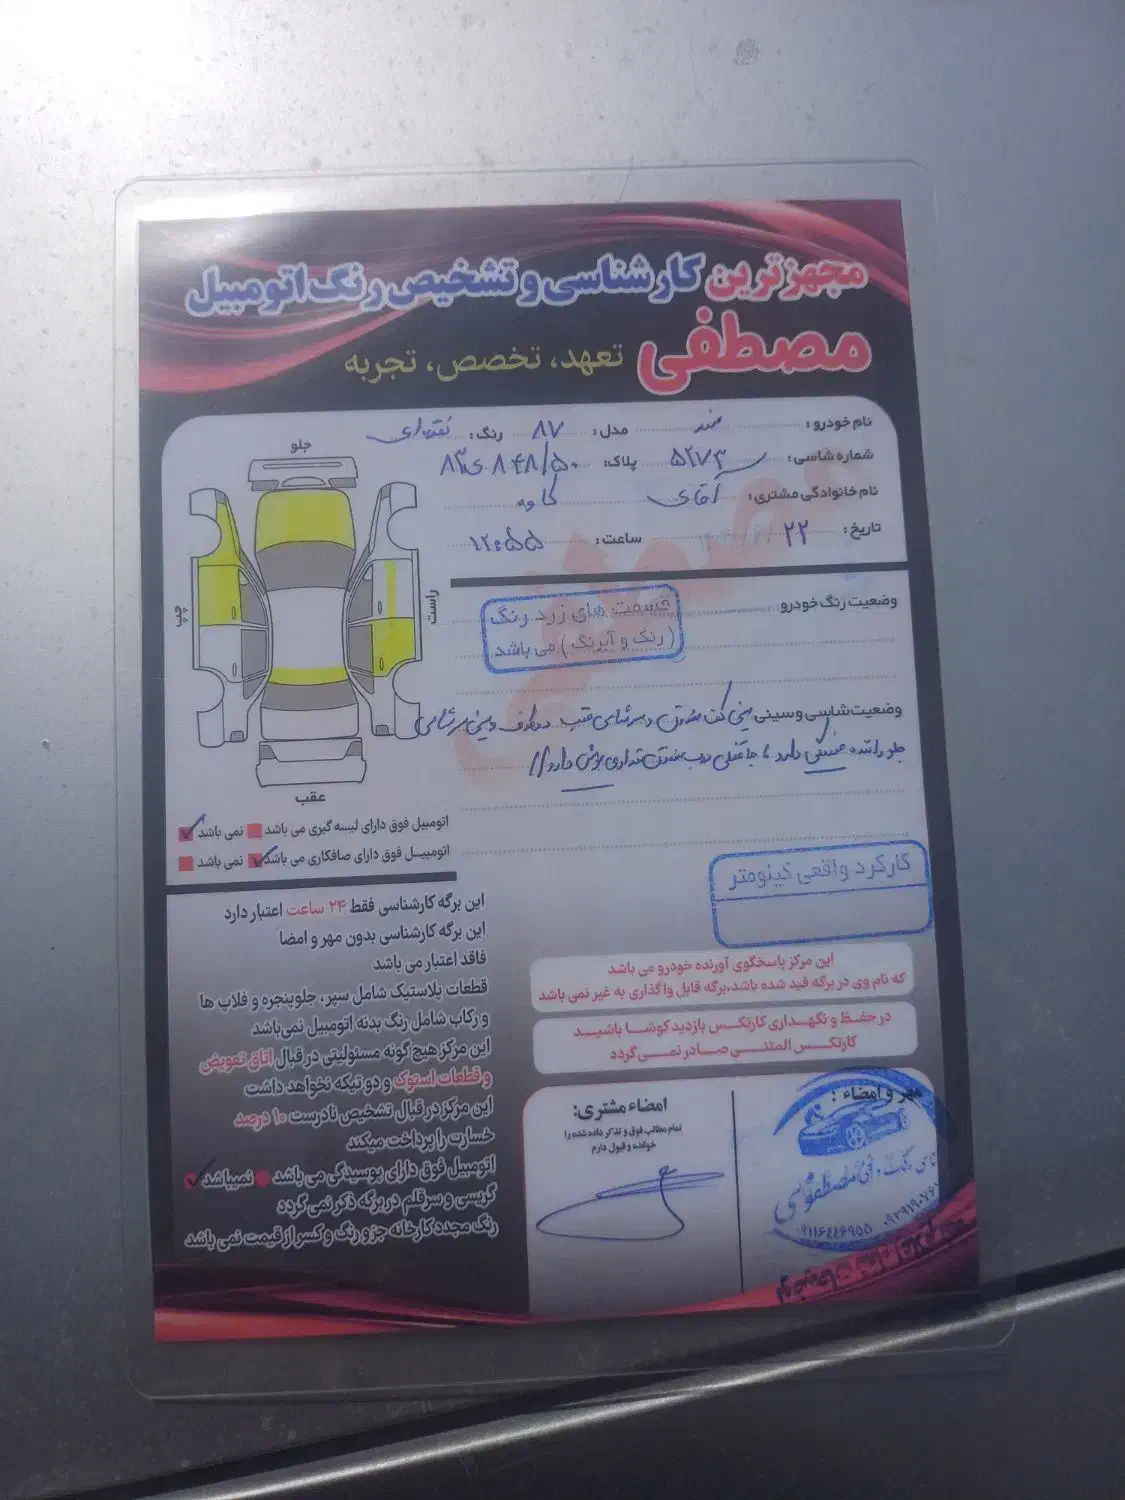 مجهزترین کارشناسی و تشخیص رنگ اتومبیل
مصطفی تعهد، تخصص، تجربه
نام خودرو: سمند مدل: ۸۷ رنگ: نقره‌ای
شماره شاسی: ۵۲۷۳ پلاک: ۸۴۸/۵۰ ی ۸۳
نام خانوادگی مشتری: آقای کاوه
تاریخ: ۲۲ ساعت: ۱۲:۵۵
جلو
چپ
راست
عقب
وضعیت رنگ خودرو
قسمت های زرد رنگ
(رنگ و آبرنگ) می باشد
وضعیت شاسی و سینی سینی کف صندوق و سرشاسی عقب
جلو راننده دارد جا قفلی درب صندوق مقداری جوش دارد //
اتومبیل فوق دارای لیسه گیری می باشد نمی باشد
اتومبیـل فوق دارای صافکاری می باشد نمی باشد
کارکرد واقعی کیلومتر
این برگه کارشناسی فقط ۲۴ ساعت اعتبار دارد
این برگه کارشناسی بدون مهر و امضا
فاقد اعتبار می باشد
قطعات پلاستیک شامل سپر، جلوپنجره و فلاپ ها
و رکاب شامل رنگ بدنه اتومبیل نمی‌باشد
این مرکز هیچ گونه مسئولیتی در قبال اتاق تعویض
و قطعات استوک و دو تیکه نخواهد داشت
این مرکز در قبال تشخیص نادرست ۱۰ درصد
خسارت را پرداخت میکند
اتومبیل فوق دارای پوسیدگی می باشد نمیباشد
گریسی و سرقلم در برگه ذکر نمی گردد
رنگ مجدد کارخانه جزو رنگ و کسر از قیمت نمی باشد
این مرکز پاسخگوی آورنده خودرو می باشد
که نام وی در برگه قید شده باشد،برگه قابل واگذاری به غیر نمی باشد
در حفظ و نگهـداری کارتکـس بازدید کوشـا باشیـد
کارتکـس المثنـی صـادر نمـی گردد
امضاء مشتری:
تمام مطالب فوق و تذکر داده شده را
خوانده و قبول دارم
مهر و امضاء :